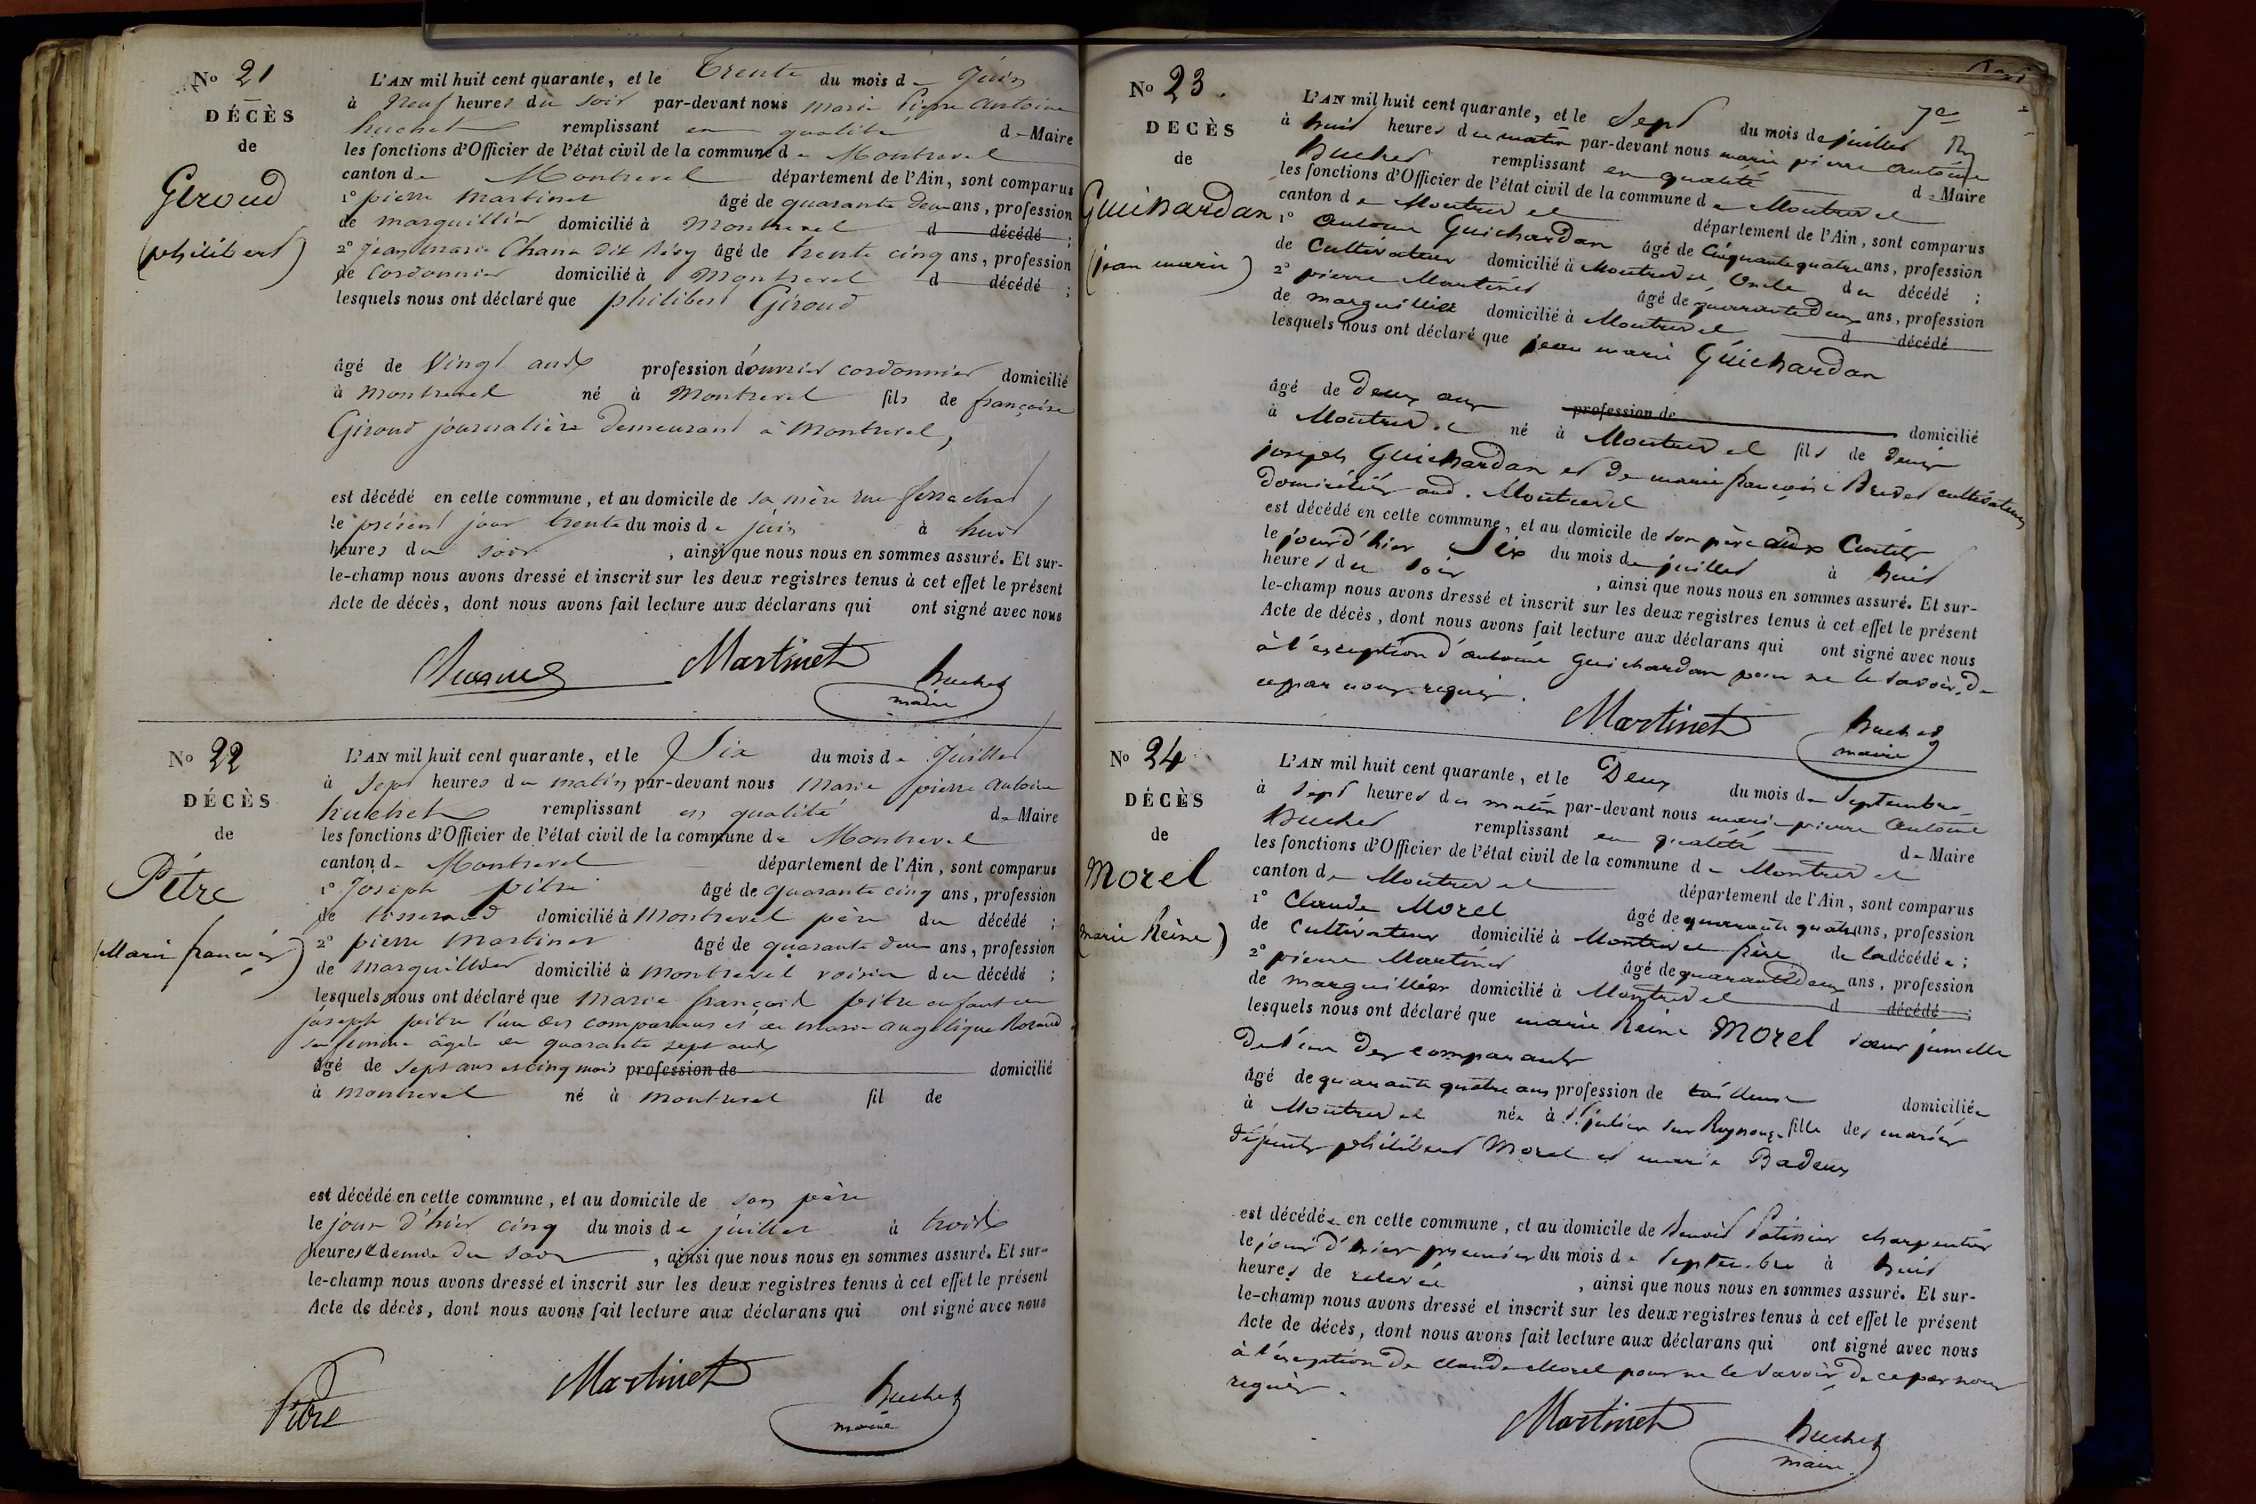 No 21
DÉCÈS
de
Giroud
(philibert)
L'AN mil huit cent quarante, et le Trente du mois de Juin
à Neuf heures du soir par-devant nous Marie Pierre Antoine
huchet remplissant en qualité de Maire
les fonctions d'Officier de l'état civil de la commune de Montrevel
canton de Montrevel département de l'Ain, sont comparus
1° pierre Martinet âgé de quarante deux ans, profession
de marguillier domicilié à Montrevel d décédé ;
2° Jean marie Chana dit âgé de trente cinq ans, profession
de Cordonnier domicilié à Montrevel d décédé ;
lesquels nous ont déclaré que philibert Giroud
âgé de Vingt ans profession d'ouvrier cordonnier domicilié
à Montrevel né à Montrevel fils de françoise
Giroud journalière demeurant à Montrevel,
est décédé en cette commune, et au domicile de sa mère rue
le présent jour trente du mois de juin à huit
heures du soir , ainsi que nous nous en sommes assuré. Et sur-
le-champ nous avons dressé et inscrit sur les deux registres tenus à cet effet le présent
Acte de décès, dont nous avons fait lecture aux déclarans qui ont signé avec nous
Martinet huchet
maire
No 22
DÉCÈS
de
Pitre
(Marie françois)
L'AN mil huit cent quarante, et le Six du mois de Juillet
à Sept heures du matin par-devant nous Marie pierre Antoine
huchet remplissant en qualité de Maire
les fonctions d'Officier de l'état civil de la commune de Montrevel
canton de Montrevel département de l'Ain, sont comparus
1° Joseph pitre âgé de quarante cinq ans, profession
de tisserand domicilié à Montrevel père du décédé ;
2° pierre Martinet âgé de quarante deux ans, profession
de Marguillier domicilié à Montrevel voisin du décédé ;
lesquels nous ont déclaré que Marie françois pitre enfant de
joseph pitre l'un des comparans et de marie angelique
sa femme âgée de quarante sept ans
âgé de sept ans et cinq mois profession de domicilié
à Montrevel né à Montrevel fil de
est décédé en cette commune, et au domicile de son père
le jour d'hier cinq du mois de juillet à trois
heures et demie du soir , ainsi que nous nous en sommes assuré. Et sur-
le-champ nous avons dressé et inscrit sur les deux registres tenus à cet effet le présent
Acte de décès, dont nous avons fait lecture aux déclarans qui ont signé avec nous
Pitre Martinet huchet
maire
No 23.
DÉCÈS
de
Guichardan
(jean marie)
L'AN mil huit cent quarante, et le Sept du mois de juillet
à huit heures du matin par-devant nous marie pierre antoine
huchet remplissant en qualité de Maire
les fonctions d'Officier de l'état civil de la commune de Montrevel
canton de Montrevel département de l'Ain, sont comparus
1° antoine Guichardan âgé de Cinquante quatre ans, profession
de Cultivateur domicilié à Montrevel Oncle du décédé ;
2° pierre Martinet âgé de quarante Deux ans, profession
de marguillier domicilié à Montrevel d décédé
lesquels nous ont déclaré que jean marie Guichardan
âgé de Deux ans profession de domicilié
à Montrevel né à Montrevel fils de Denis
joseph Guichardan et de marie françoise cultivateurs
Domiciliés aud. Montrevel
est décédé en cette commune, et au domicile de son père aux
le jour d'hier Six du mois de juillet à huit
heures du soir , ainsi que nous nous en sommes assuré. Et sur-
le-champ nous avons dressé et inscrit sur les deux registres tenus à cet effet le présent
Acte de décès, dont nous avons fait lecture aux déclarans qui ont signé avec nous
à l'exception d'antoine Guichardan pour ne le savoir, de
ce par nous requis.
Martinet huchet
maire
No 24
DÉCÈS
de
Morel
(marie Reine)
L'AN mil huit cent quarante, et le Deux du mois de Septembre
à Sept heures du matin par-devant nous marie pierre Antoine
huchet remplissant en qualité de Maire
les fonctions d'Officier de l'état civil de la commune de Montrevel
canton de Montrevel département de l'Ain, sont comparus
1° Claude Morel âgé de quarante quatre ans, profession
de Cultivateur domicilié à Montrevel frère de la décédée ;
2° pierre Martinet âgé de quarante deux ans, profession
de marguillier domicilié à Montrevel d décédé ;
lesquels nous ont déclaré que marie Reine Morel sœur jumelle
de l'un des comparants
âgé de quarante quatre ans profession de tailleuse domiciliée
à Montrevel née à St julien sur Reyssouze fille des mariés
défunts philibert Morel et marie Badoux
est décédée en cette commune, et au domicile de benoit charpentier
le jour d'hier premier du mois de Septembre à huit
heures de relevée , ainsi que nous nous en sommes assuré. Et sur-
le-champ nous avons dressé et inscrit sur les deux registres tenus à cet effet le présent
Acte de décès, dont nous avons fait lecture aux déclarans qui ont signé avec nous
à l'exception de claude Morel pour ne le savoir de ce par nous
requis.
Martinet huchet
maire